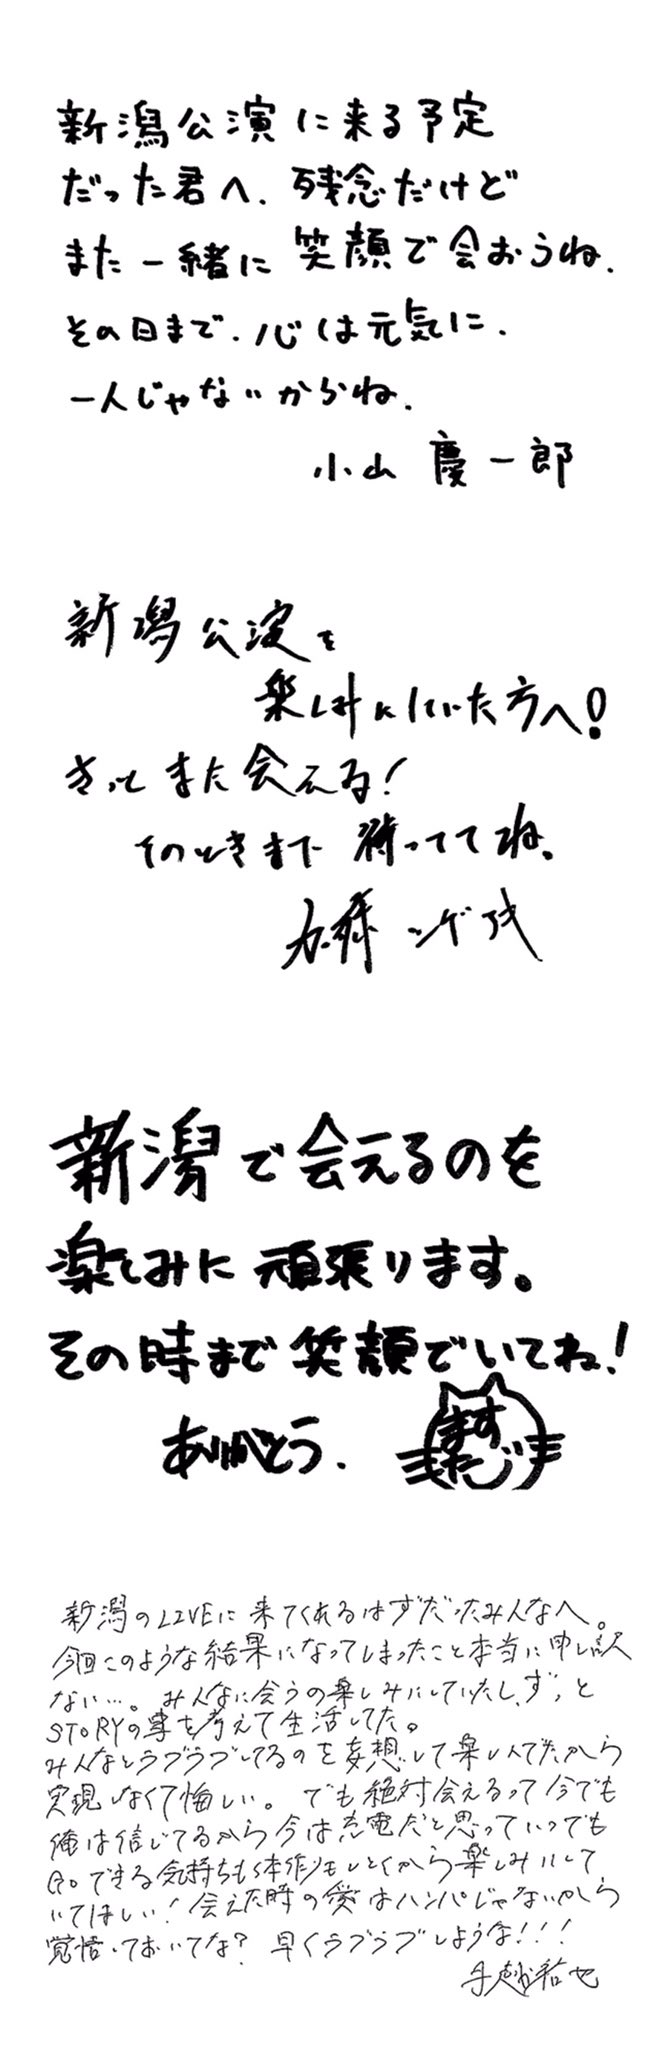 新潟公演に来る予定
だった君へ. 残念だけど
また一緒に 笑顔で会おうね.
その日まで. 心は元気に.
一人じゃないからね.
小山 慶一郎
新潟公演を
楽しみにしていた方へ!
きっとまた会える!
そのときまで 待っててね.
加藤シゲアキ
新潟で会えるのを
楽しみに頑張ります。
その時まで笑顔でいてね!
ありがとう.
ます
ただ
新潟のLIVEに来てくれるはずだったみんなへ。
今回このような結果になってしまったこと本当に申し訳
ない…。みんなに会うの楽しみにしていたし、ずっと
STORYの事を考えて生活してた。
みんなとラブラブしてるのを妄想して楽しんでたから
実現しなくて悔しい。でも絶対会えるって今でも
俺は信じてるから今は充電だと思っていつでも
Goできる気持ちも体作りもしとくから楽しみにして
いてほしい!会えた時の愛はハンパじゃないから
覚悟しておいてな? 早くラブラブしような!!!
手越祐也